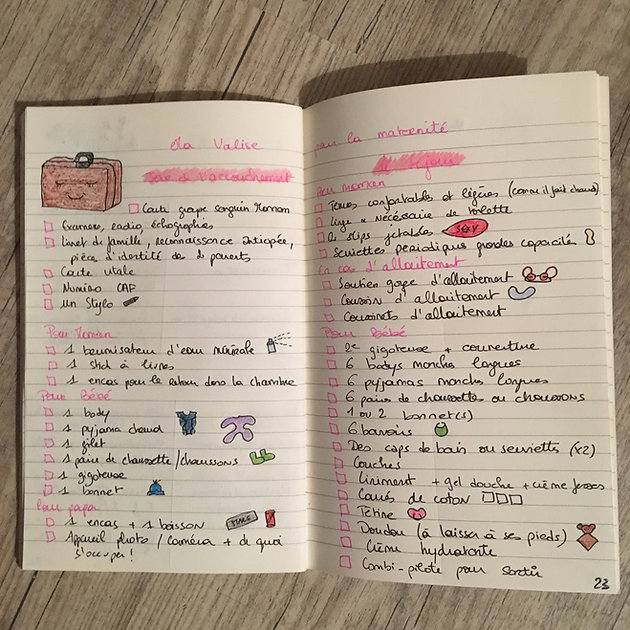 Ma Valise
pour la maternité
Jour de l'accouchement
Carte groupe sanguin Maman
Examens, radio, échographies
Livret de famille, reconnaissance anticipée,
pièce d'identité des 2 parents
Carte vitale
Numéro CAF
un stylo
Pour Maman
1 brumisateur d'eau minérale
1 stick à lèvres
1 encas pour le retour dans la chambre
Pour Bébé
1 body
1 pyjama chaud
1 gilet
1 paire de chaussette / chaussons
1 gigoteuse
1 bonnet
Pour papa
1 encas + 1 boisson
Appareil photo / caméra + de quoi
s'occuper !
séjour
Pour maman
Tenues confortables et légères (comme il fait chaud)
Linge + Nécessaire de toilette
slips jetables SEXY
Serviettes périodiques grandes capacité
En cas d'allaitement
Soutien gorge d'allaitement
Coussin d'allaitement
Coussinets d'allaitement
Pour Bébé
2e gigoteuse + couverture
6 bodys manches longues
6 pyjamas manches longues
6 paires de chaussettes ou chaussons
1 ou 2 bonnet(s)
6 bavoirs
Des capes de bain ou serviettes (x2)
Couches
Liniment + gel douche + crème fesses
Carrés de coton
Tétine
Doudou (à laisser à ses pieds)
Crème hydratante
Combi-pilote pour sortir
23